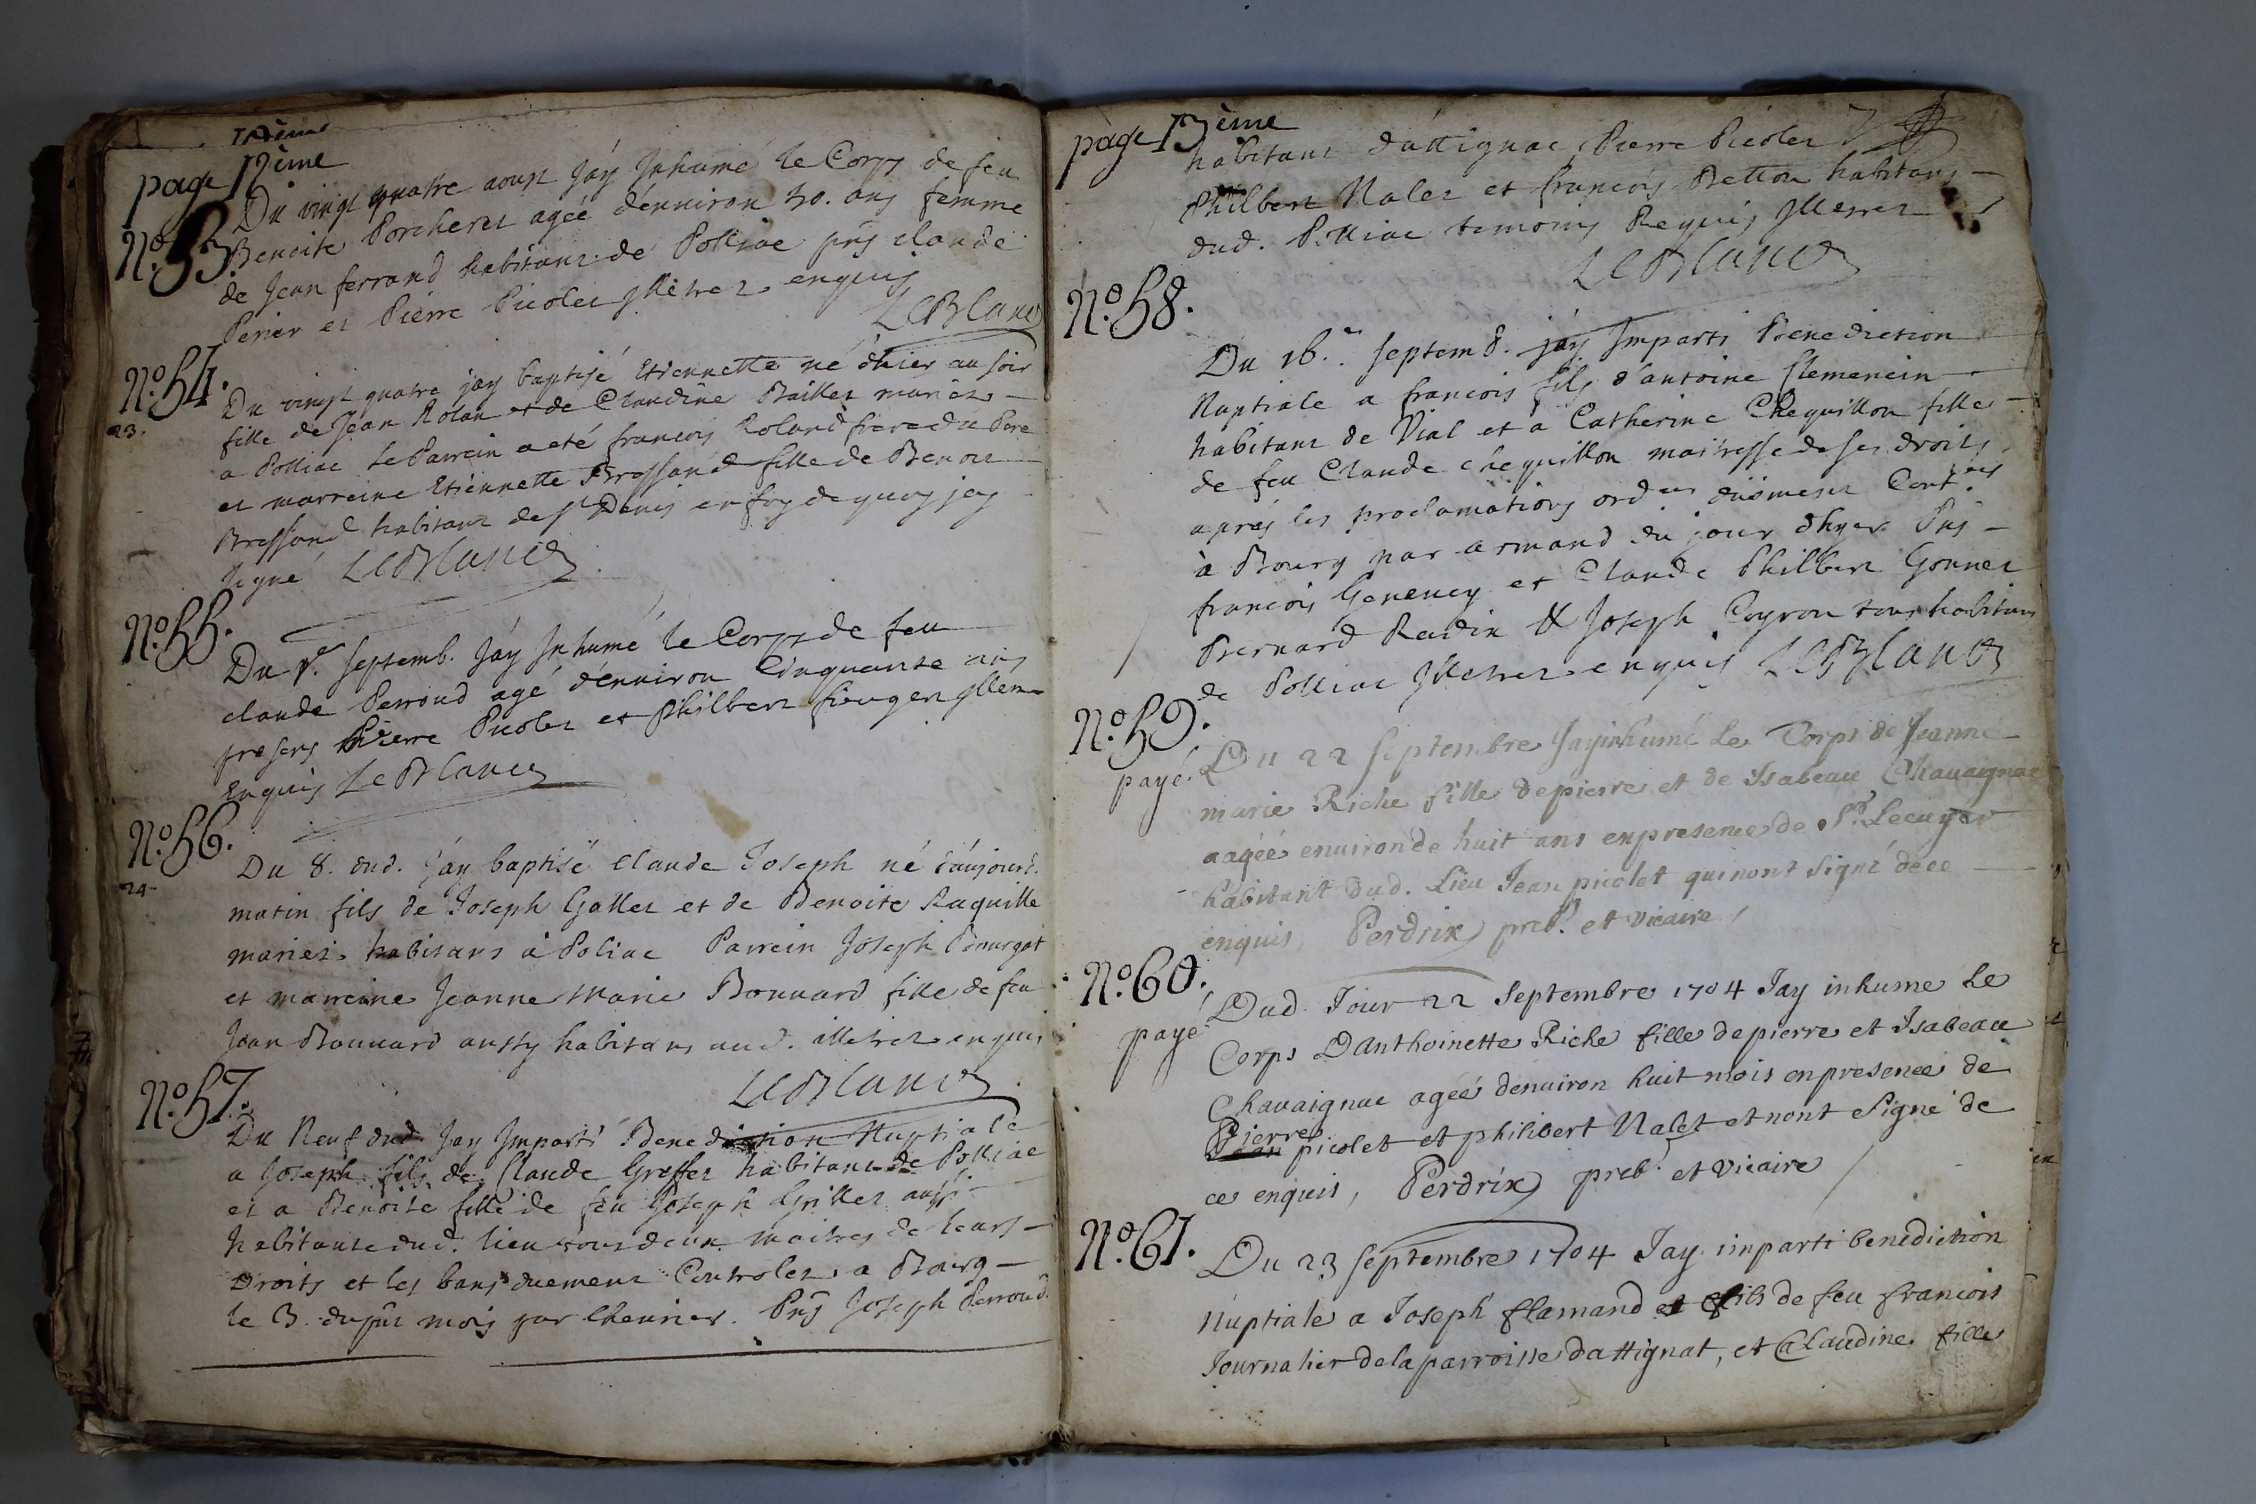 page 12ème
N.º 53.
Du vingt quatre aoust jáy Inhumé le Corps de feu
Benoite Porcheret ageé d'enuiron 50. ans femme
de Jean ferrand habitant de Polliac pñs claude
Perier et Pierre Picolet Illetrez enquis
LeBlanc
N.º 54.
23.
Du vingt quatre jay baptisé Etiennette né d'hier au soir
fille de Jean Rolan et de Claudine Baillet mariéz
a Polliac le Parrein a eté francois Roland frere du Pere
et marreine Etiennette Bressand fille de Benoit
Bressand habitant de st Denis en foy de quoy jay
signé LeBlanc
N.º 55.
Du 1.er septemb. Jáy Inhumé le Corps de feu
claude Perroud agé d'enuiron Cinquante ans
presens Pierre Picolet et Philbert
Enquis LeBlanc
N.º 56.
24.
Du 8. dud. jáy baptisé Claude Joseph né d'aujourd.
matin fils de Joseph Gallet et de Benoite Raquille
mariéz habitans à Poliac Parrein Joseph
et marreine Jeanne Marie Bouuard fille de feu
Jean Bouuard aussy habitans aud. illetrez enquis
LeBlanc
N.º 57.
Du Neuf dud. Jay Imparti Benediction Nuptiale
a Joseph fils de Claude Greffet habitant de Polliac
et a Benoite fille de feu Joseph Grillet aussi
habitante dud. lieu tous deux maitres de leurs
Droits et les bans duement Controlez a Bourg
le 3. du pñt mois par Cheurier. Pñs Joseph Perroud
page 13ème
habitant d'attignac Pierre Picolet
Philbert Nalet et francois Betton habitans
dud. Polliac temoins Requis Illetrez
LeBlanc
N.º 58.
Du 16.e septemb. jay Imparti Benediction
Nuptiale a francois fils d'antoine Clemencin
habitant de Vial et a Catherine Chequillon fille
de feu Claude chequillon maitresse de ses droits
aprés les proclamations ord.res duëment Cont.ées
à Bourg par armand du jour d'hyer Pñs
francois Geneucy et Claude Philbert Gonnet
Bernard Radix & Joseph Coyron tous habitans
de Polliac Illetrez enquis LeBlanc
N.º 59.
payé.
Du 22 septembre Jay inhumé Le Corps de Jeanne
marie Riche fille de pierre et de Isabeau Chauaignac
aagée enuiron de huit ans en presence de Sr. Lecuyer
habitant dud. Lieu Jean picolet qui nont signé de ce
enquis, Perdrix preb.r et vicaire
N.º 60.
payé
Dud. Jour 22 Septembre 1704 Jay inhume Le
Corps D'anthoinette Riche fille de pierre et Isabeau
Chauaignac ageé denuiron huit mois en presence de
Pierre
Jean picolet et philibert Nalet et nont Signé de
ce enquis, Perdrix preb.r et vicaire
N.º 61.
Du 23 septembre 1704 Jay imparti benediction
Nuptiale a Joseph flamand et fils de feu francois
Journalier de la parroisse dattignat, et Claudine fille